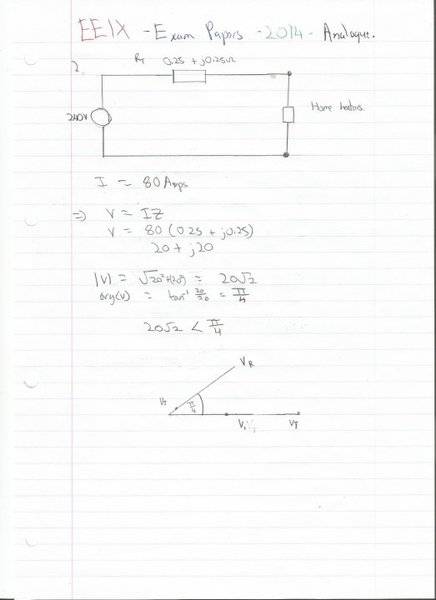 EE1X - Exam Papers - 2014 - Analogue.
2.
R_T 0.25 + j0.25Ω
240V
Home
I = 80 Amps
⇒ V = IZ
V = 80 (0.25 + j0.25)
20 + j20
|V| = √(20²+(20²) = 20√2
arg(V) = tan⁻¹ 20/20 = π/4
20√2 < π/4
V_R
π/4
V_T